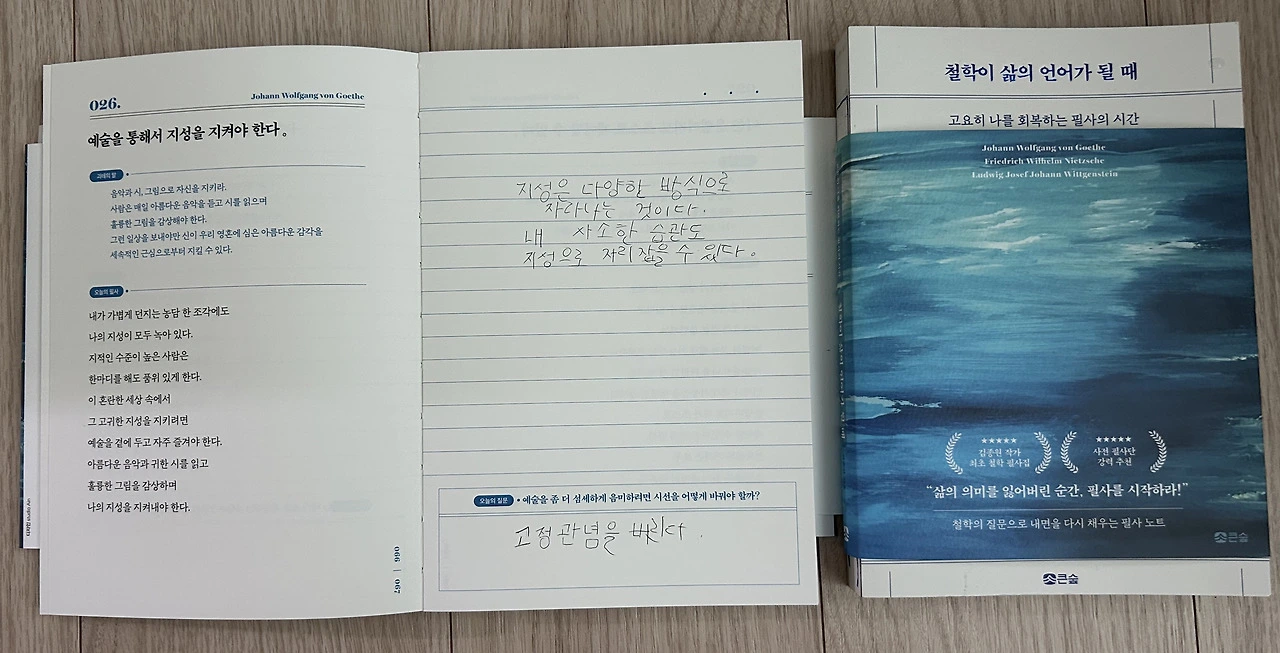 026.
Johann Wolfgang von Goethe
예술을 통해서 지성을 지켜야 한다。
괴테의 말
음악과 시, 그림으로 자신을 지키라.
사람은 매일 아름다운 음악을 듣고 시를 읽으며
훌륭한 그림을 감상해야 한다.
그런 일상을 보내야만 신이 우리 영혼에 심은 아름다운 감각을
세속적인 근심으로부터 지킬 수 있다.
오늘의 필사
내가 가볍게 던지는 농담 한 조각에도
나의 지성이 모두 녹아 있다.
지적인 수준이 높은 사람은
한마디를 해도 품위 있게 한다.
이 혼란한 세상 속에서
그 고귀한 지성을 지키려면
예술을 곁에 두고 자주 즐겨야 한다.
아름다운 음악과 귀한 시를 읽고
훌륭한 그림을 감상하며
나의 지성을 지켜내야 한다.
066 | 067
지성은 다양한 방식으로
자라나는 것이다.
내 사소한 습관도
지성으로 자리잡을 수 있다.
오늘의 질문 • 예술을 좀 더 섬세하게 음미하려면 시선을 어떻게 바꿔야 할까?
고정관념을 버리다.
철학이 삶의 언어가 될 때
고요히 나를 회복하는 필사의 시간
Johann Wolfgang von Goethe
Friedrich Wilhelm Nietzsche
Ludwig Josef Johann Wittgenstein
★★★★★
김종원 작가
최초 철학 필사집
★★★★★
사전 필사단
강력 추천
“삶의 의미를 잃어버린 순간, 필사를 시작하라!”
철학의 질문으로 내면을 다시 채우는 필사 노트
큰숲
큰숲